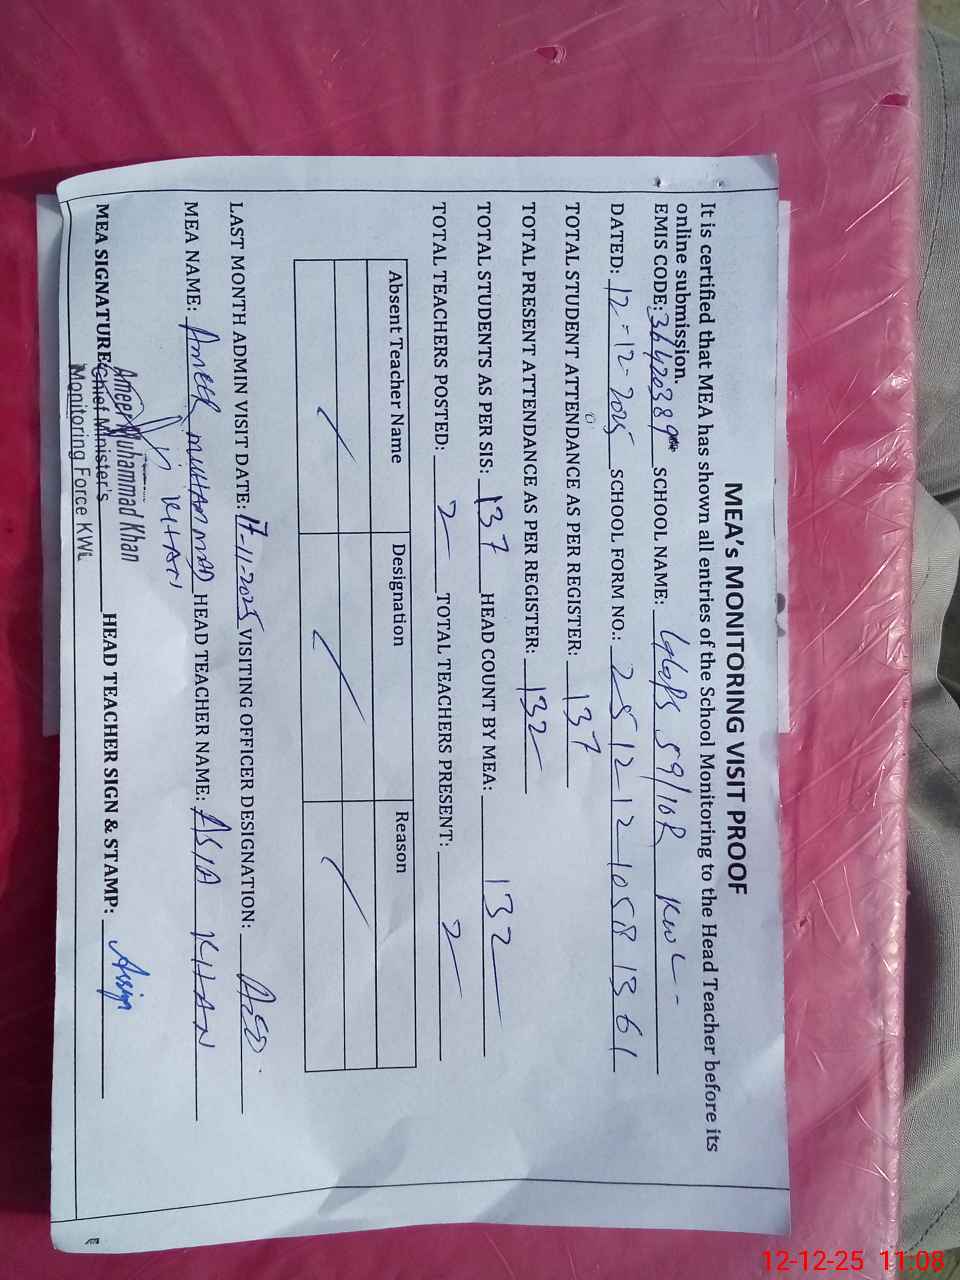 MEA's MONITORING VISIT PROOF
It is certified that MEA has shown all entries of the School Monitoring to the Head Teacher before its
online submission.
EMIS CODE: 36420389 SCHOOL NAME: GGPS 59/10R KWL
DATED: 12-12-2025 SCHOOL FORM NO.: 2512121058 1361
TOTAL STUDENT ATTENDANCE AS PER REGISTER: 137
TOTAL PRESENT ATTENDANCE AS PER REGISTER: 132
TOTAL STUDENTS AS PER SIS: 137 HEAD COUNT BY MEA: 132
TOTAL TEACHERS POSTED: 2 TOTAL TEACHERS PRESENT: 2
Absent Teacher Name Designation Reason
LAST MONTH ADMIN VISIT DATE: 17-11-2025 VISITING OFFICER DESIGNATION: AEO
MEA NAME: AMEER MUHAMMAD KHAN HEAD TEACHER NAME: ASIA KHAN
MEA SIGNATURE: HEAD TEACHER SIGN & STAMP:
Ameer Muhammad Khan
Chief Minister's
Monitoring Force KWL
12-12-25 11:08